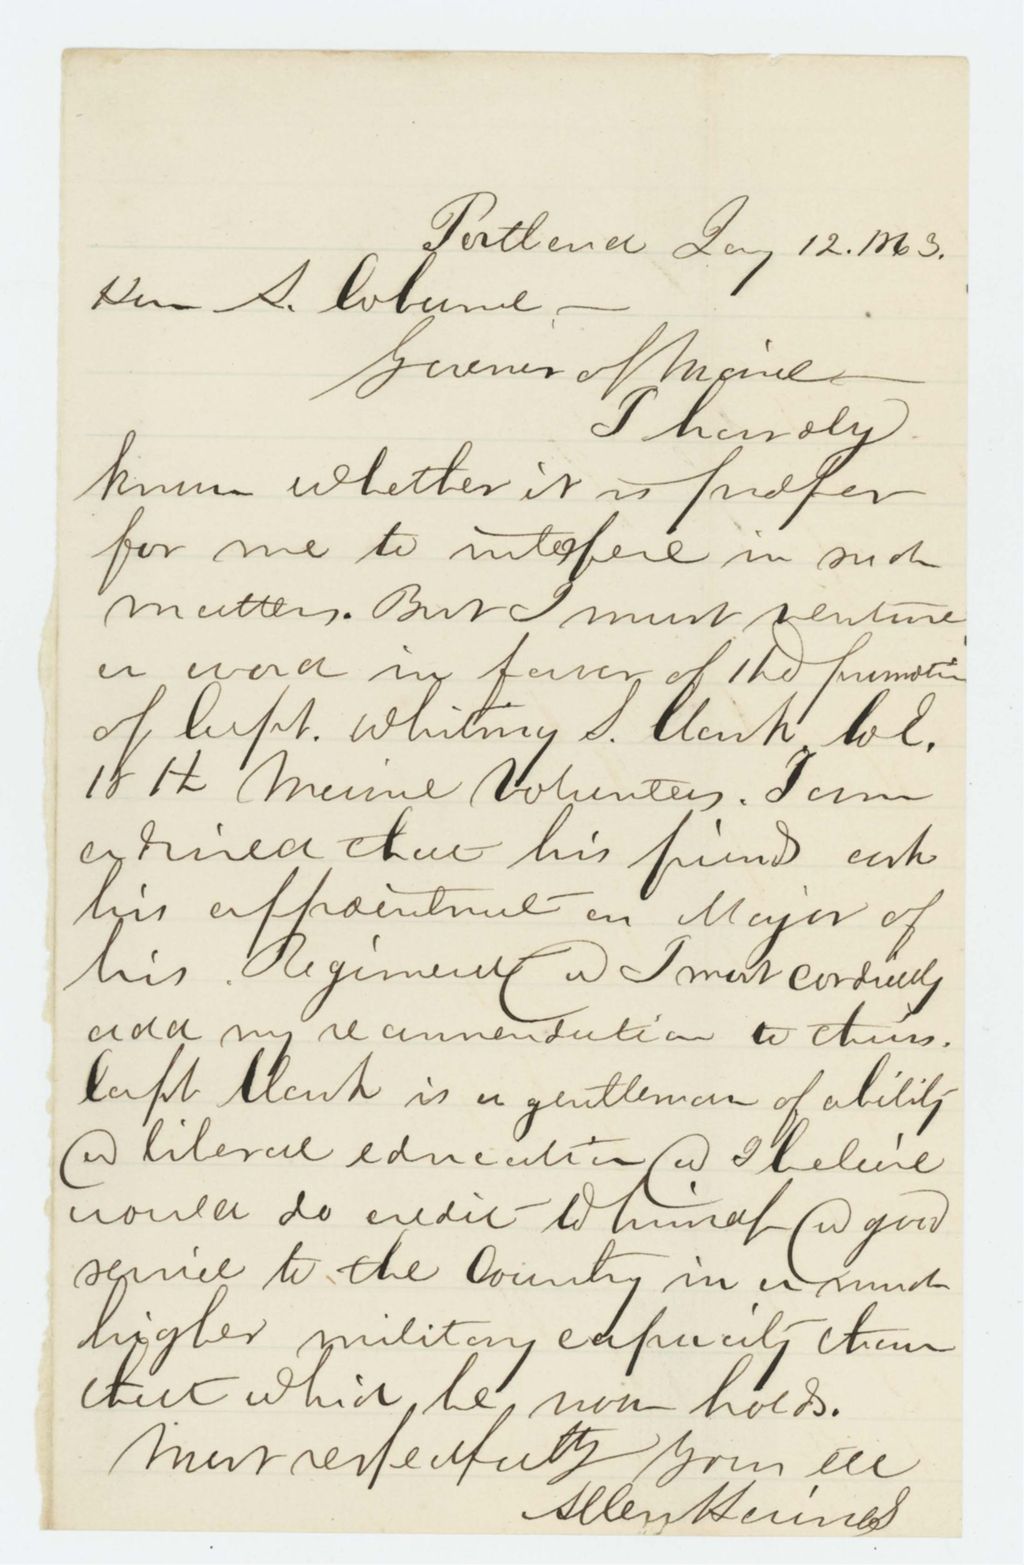 Portland Jany 12. 1863.
Hon A. Coburn —
Governor of Maine —
I hardly
know whether it is proper
for me to interfere in such
matters. But I must venture
a word in favor of the promotion
of Capt. Whitney S. Clark, Co E.
Maine Volunteers. I am
advised that his friends ask
his appointment as Major of
his Regiment & I most cordially
add my recommendation to theirs.
Capt Clark is a gentleman of ability
& liberal education & I believe
would do credit to himself & good
service to the Country in a much
higher military capacity than
that which he now holds.
Most respectfully Yours &c
Allen Haines